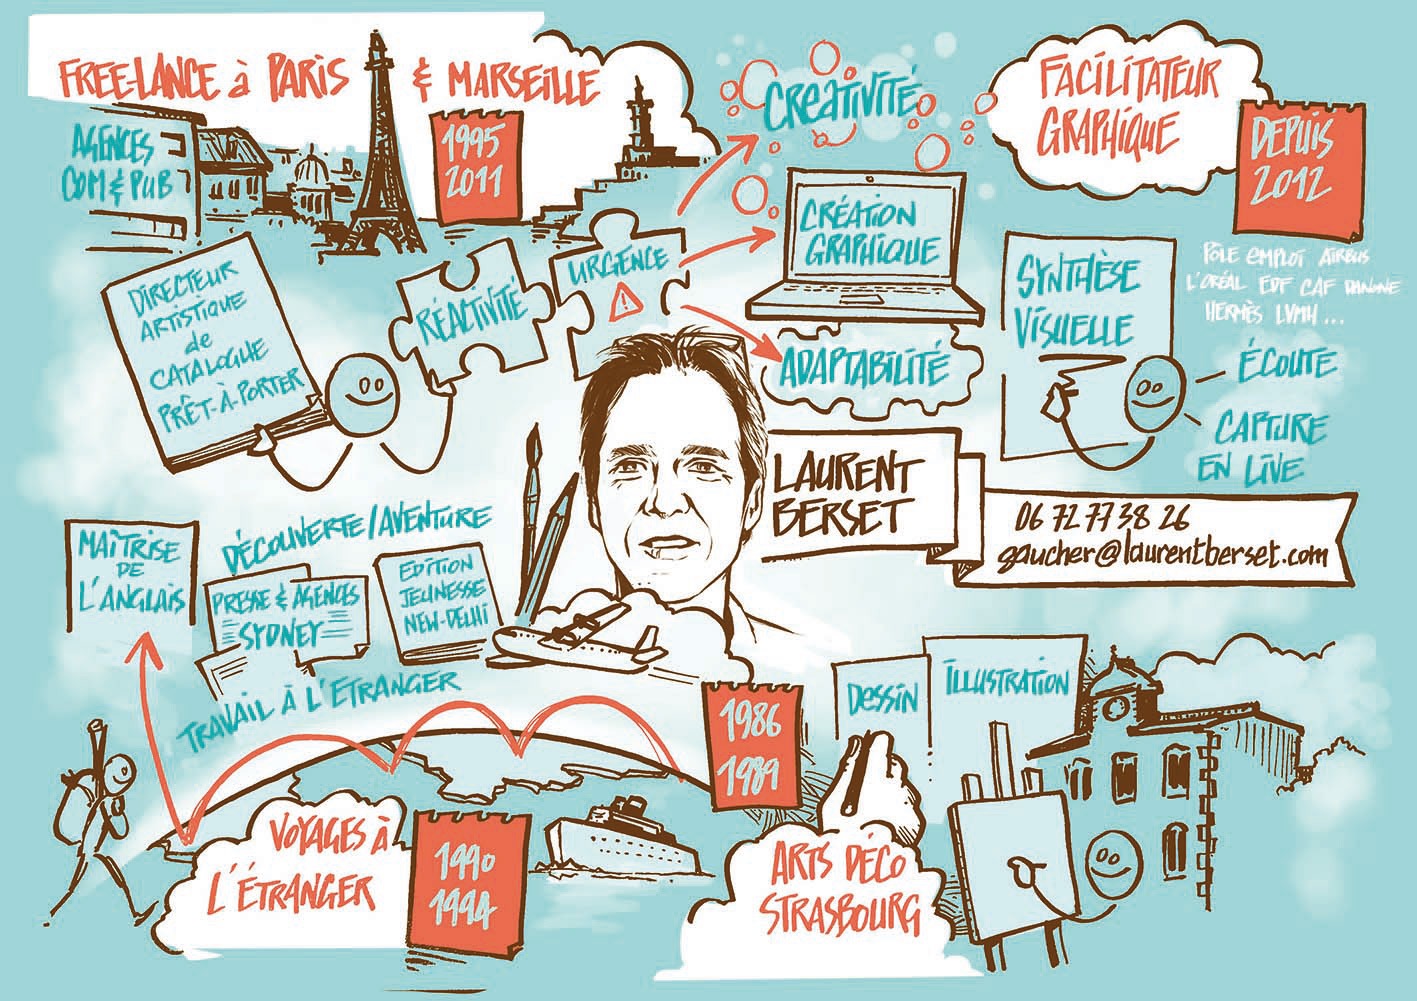 FREE-LANCE à PARIS & MARSEILLE
AGENCES
COM & PUB
1995
2011
DIRECTEUR
ARTISTIQUE
de
CATALOGUE
PRÊT-À-PORTER
RÉACTIVITÉ
URGENCE
!
CREATIVITÉ
CRÉATION
GRAPHIQUE
ADAPTABILITÉ
FACILITATEUR
GRAPHIQUE
DEPUIS
2012
PÔLE EMPLOI AIRBUS
L'ORÉAL EDF CAF DANONE
HERMÈS LVMH...
SYNTHÈSE
VISUELLE
ÉCOUTE
CAPTURE
EN LIVE
LAURENT
BERSET
06 72 77 38 26
gaucher@laurentberset.com
MAÎTRISE
DE
L'ANGLAIS
DÉCOUVERTE/AVENTURE
PRESSE & AGENCES
SYDNEY
EDITION
JEUNESSE
NEW-DELHI
TRAVAIL À L'ETRANGER
VOYAGES À
L'ÉTRANGER
1990
1994
1986
1989
DESSIN
ILLUSTRATION
ARTS DÉCO
STRASBOURG